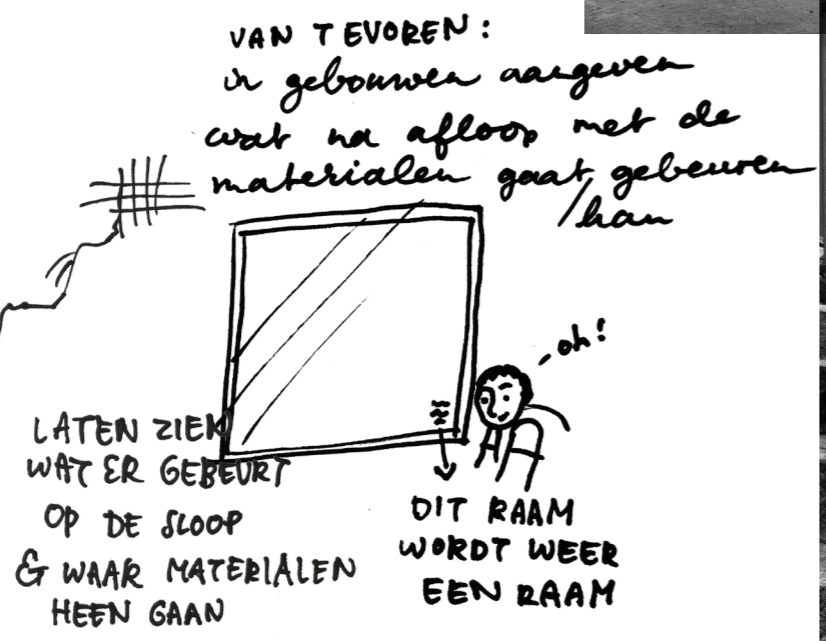 VAN TEVOREN:
in gebouwen aangeven
wat na afloop met de
materialen gaat gebeuren
/kan
- oh!
LATEN ZIEN
WAT ER GEBEURT
OP DE SLOOP
& WAAR MATERIALEN
HEEN GAAN
DIT RAAM
WORDT WEER
EEN RAAM